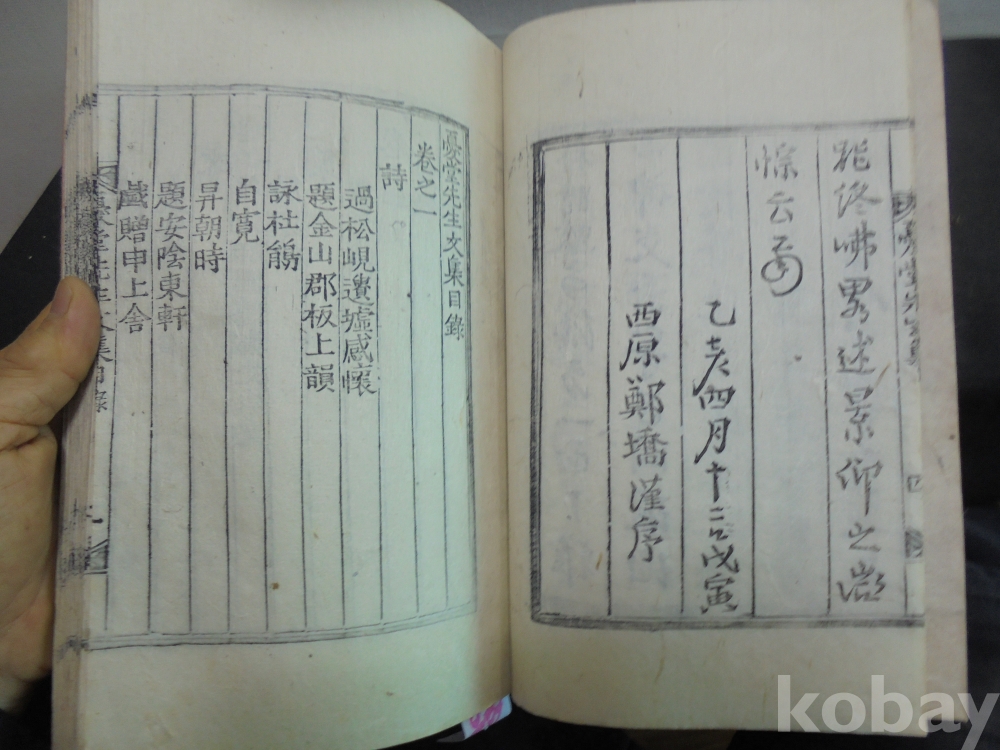 能終咈略述景仰之
悰云爾
乙亥四月十二日戊寅
西原鄭墧謹序
憂堂先生文集目錄
卷之一
詩
過松峴遺墟感懷
題金山郡板上韻
詠杜鵑
自寬
昇朝時
題安陰東軒
戱贈申上舍
kobay